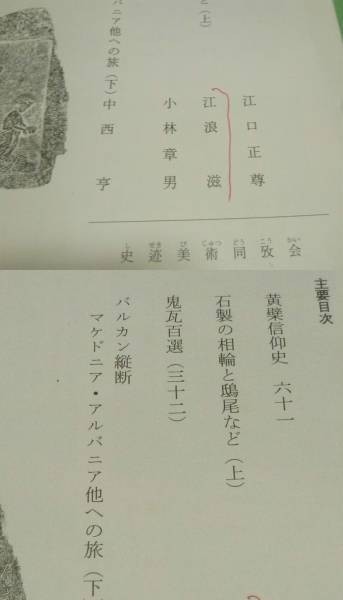 と（上）
ニア他への旅（下）
江口正尊
江浪滋
小林章男
中西亨
史迹美術同攷会
しせきびじゅつどうこうかい
主要目次
黄檗信仰史 六十一
石製の相輪と鴟尾など（上）
鬼瓦百選（三十二）
バルカン縦断
マケドニア・アルバニア他への旅（下